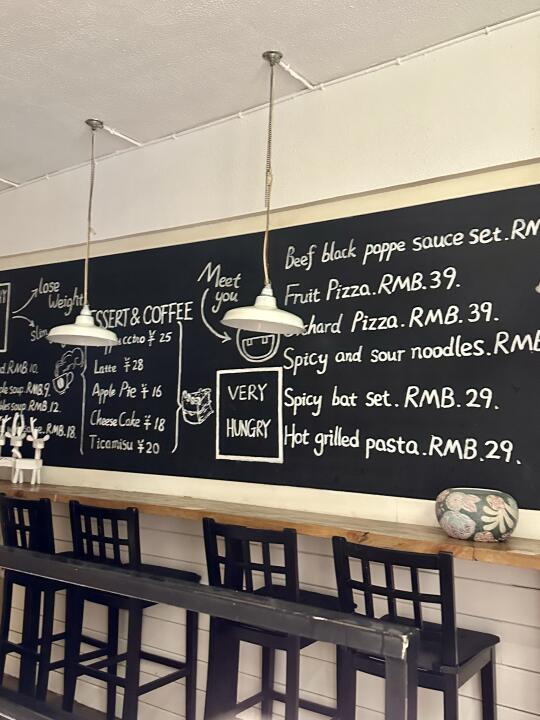 lose
Weight
slim
RMB.10.
soup.RMB.9.
soup.RMB.12.
RMB.18.
DESSERT & COFFEE
¥ 25
Latte ¥28
Apple Pie ¥16
Cheese Cake ¥18
Ticamisu ¥20
Meet
you
VERY
HUNGRY
Beef black pappe sauce set.RM
Fruit Pizza.RMB.39.
Pizza.RMB.39.
Spicy and sour noodles.RMB
Spicy bat set.RMB.29.
Hot grilled pasta.RMB.29.